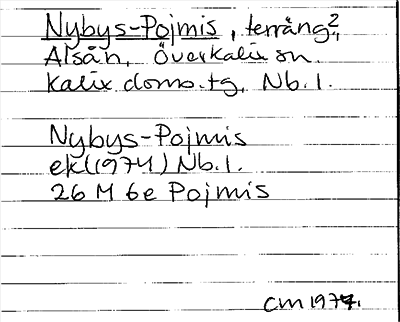 Nybys-Pojmis, terräng?,
Alsån, Överkalix sn
Kalix doms.tg, Nb.l.
Nybys-Pojmis
ek (1974) Nb.l.
26 M 6e Pojmis
CM 1977.